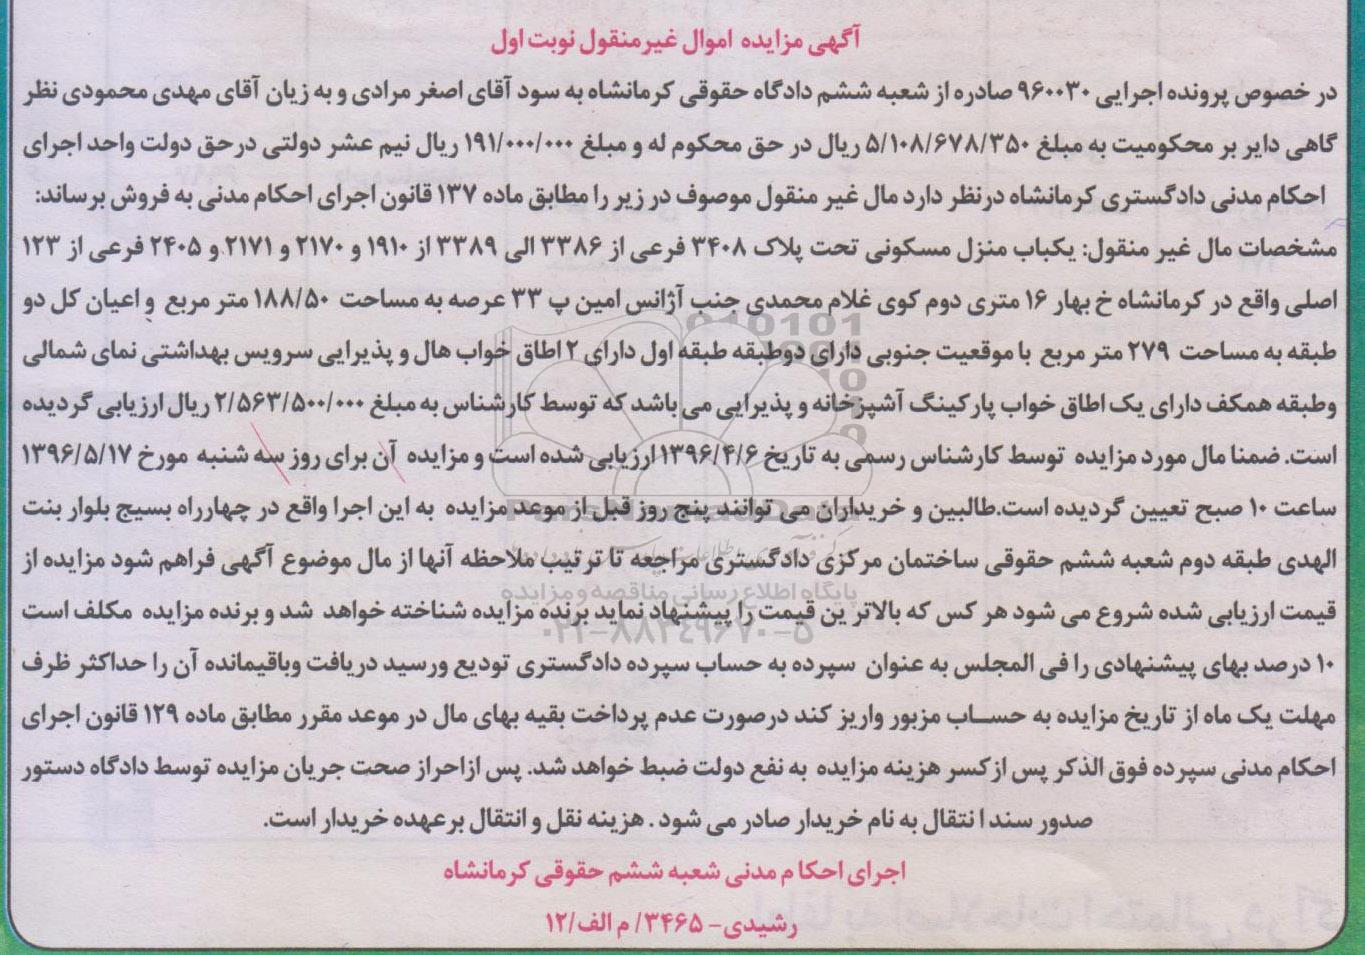 آگهی مزایده اموال غیرمنقول نوبت اول
در خصوص پرونده اجرایی ۹۶۰۰۳۰ صادره از شعبه ششم دادگاه حقوقی کرمانشاه به سود آقای اصغر مرادی و به زیان آقای مهدی محمودی نظر
گاهی دایر بر محکومیت به مبلغ ۵/۱۰۸/۶۷۸/۳۵۰ ریال در حق محکوم له و مبلغ ۱۹۱/۰۰۰/۰۰۰ ریال نیم عشر دولتی درحق دولت واحد اجرای
احکام مدنی دادگستری کرمانشاه درنظر دارد مال غیر منقول موصوف در زیر را مطابق ماده ۱۳۷ قانون اجرای احکام مدنی به فروش برساند:
مشخصات مال غیر منقول: یکباب منزل مسکونی تحت پلاک ۳۴۰۸ فرعی از ۳۳۸۶ الی ۳۳۸۹ از ۱۹۱۰ و ۲۱۷۰ و ۲۱۷۱ و ۲۴۰۵ فرعی از ۱۲۳
اصلی واقع در کرمانشاه خ بهار ۱۶ متری دوم کوی غلام محمدی جنب آژانس امین پ ۳۳ عرصه به مساحت ۱۸۸/۵۰ متر مربع و اعیان کل دو
طبقه به مساحت ۲۷۹ متر مربع با موقعیت جنوبی دارای دوطبقه طبقه اول دارای ۲ اطاق خواب هال و پذیرایی سرویس بهداشتی نمای شمالی
وطبقه همکف دارای یک اطاق خواب پارکینگ آشپزخانه و پذیرایی می باشد که توسط کارشناس به مبلغ ۲/۵۶۳/۵۰۰/۰۰۰ ریال ارزیابی گردیده
است. ضمنا مال مورد مزایده توسط کارشناس رسمی به تاریخ ۱۳۹۶/۴/۶ ارزیابی شده است و مزایده آن برای روز سه شنبه مورخ ۱۳۹۶/۵/۱۷
ساعت ۱۰ صبح تعیین گردیده است.طالبین و خریداران می توانند پنج روز قبل از موعد مزایده به این اجرا واقع در چهارراه بسیج بلوار بنت
الهدی طبقه دوم شعبه ششم حقوقی ساختمان مرکزی دادگستری مراجعه تا ترتیب ملاحظه آنها از مال موضوع آگهی فراهم شود مزایده از
قیمت ارزیابی شده شروع می شود هر کس که بالاتر ین قیمت را پیشنهاد نماید برنده مزایده شناخته خواهد شد و برنده مزایده مکلف است
۱۰ درصد بهای پیشنهادی را فی المجلس به عنوان سپرده به حساب سپرده دادگستری تودیع ورسید دریافت وباقیمانده آن را حداکثر ظرف
مهلت یک ماه از تاریخ مزایده به حساب مزبور واریز کند درصورت عدم پرداخت بقیه بهای مال در موعد مقرر مطابق ماده ۱۲۹ قانون اجرای
احکام مدنی سپرده فوق الذکر پس ازکسر هزینه مزایده به نفع دولت ضبط خواهد شد. پس ازاحراز صحت جریان مزایده توسط دادگاه دستور
صدور سند ا نتقال به نام خریدار صادر می شود . هزینه نقل و انتقال برعهده خریدار است.
اجرای احکا م مدنی شعبه ششم حقوقی کرمانشاه
رشیدی- ۳۴۶۵/ م الف/۱۲
پایگاه اطلاع رسانی مناقصه و مزایده
۰۲۱-۸۸۳۴۹۶۷۰-۵